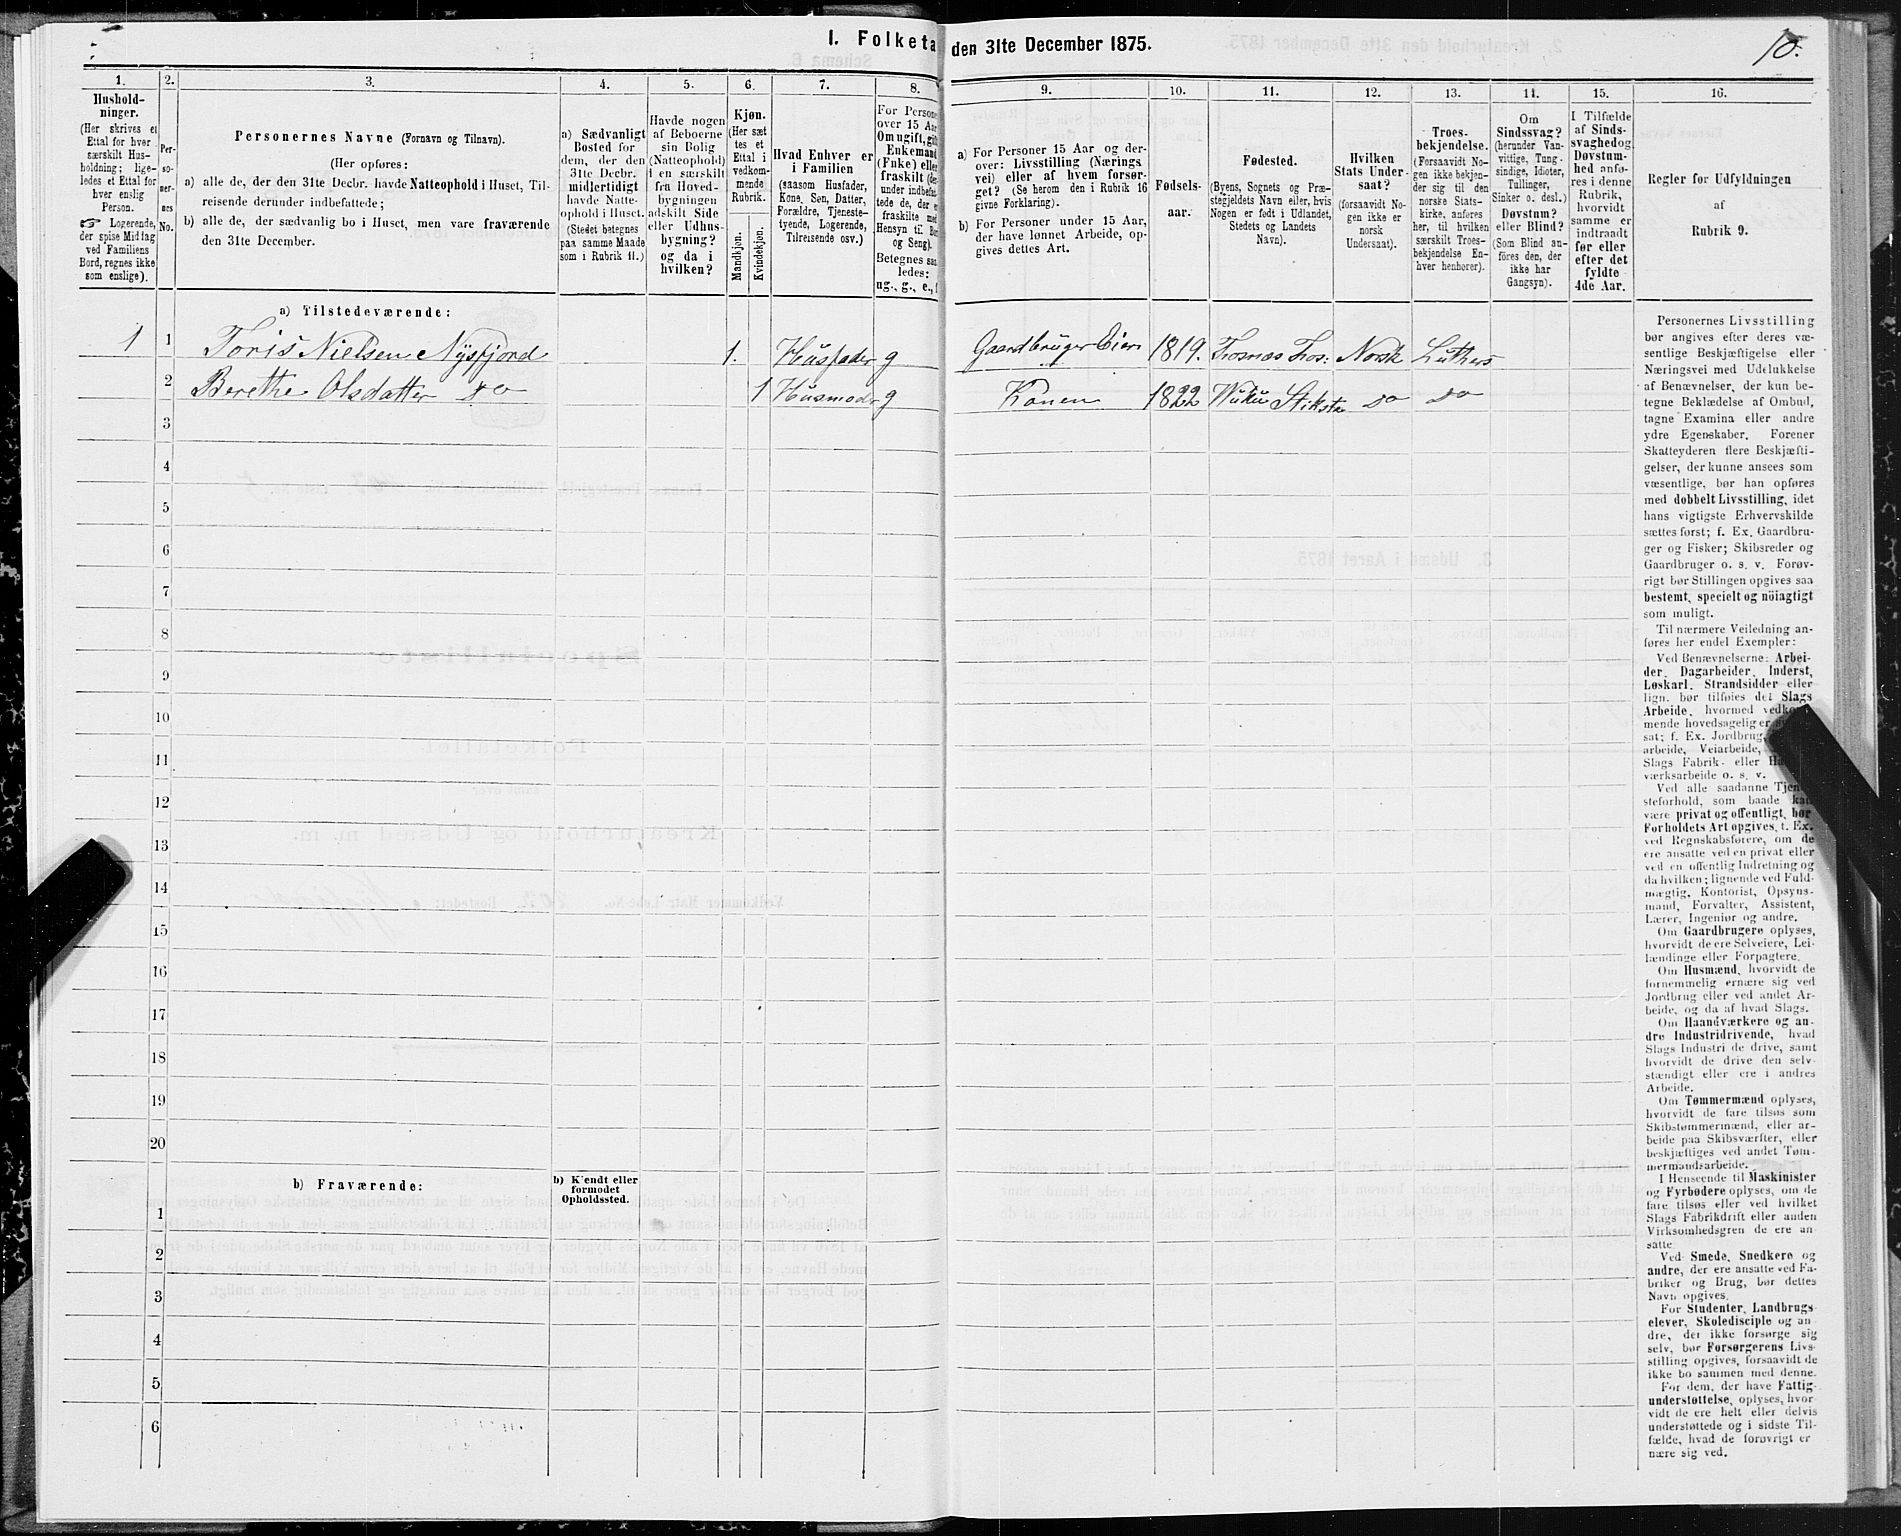 I. Folketæ den 31te December 1875.
10.
1.
Hushold-
ninger.
(Her skrives et
Ettal for hver
særskilt Hus-
holdning; lige-
ledes et Ettal for
hver enslig
Person.
☞ Logerende,
der spise Middag
ved Familiens
Bord, regnes ikke
som enslige).
2.
Per-
so-
ner-
nes
No.
3.
Personernes Navne (Fornavn og Tilnavn).
(Her opføres:
a) alle de, der den 31te Decbr. havde Natteophold i Huset, Til-
reisende derunder indbefattede;
b) alle de, der sædvanlig bo i Huset, men vare fraværende
den 31te December.
4.
a) Sædvanligt
Bosted for
dem, der den
31te Decbr.
midlertidigt
havde Natte-
ophold i Huset.
(Stedet betegnes
paa samme Maade
som i Rubrik 11.)
5.
Havde nogen
af Beboerne
sin Bolig
(Natteophold)
i en særskilt
fra Hoved-
bygningen
adskilt Side
eller Udhus-
bygning?
og da i
hvilken?
6.
Kjøn.
(Her sæt-
tes et
Ettal i
vedkom-
mende
Rubrik.
Mandkjøn.
Kvindekjøn.
7.
Hvad Enhver er
i Familien
(saasom Husfader,
Kone, Søn, Datter,
Forældre, Tjeneste-
tyende, Logerende,
Tilreisende osv.)
8.
For Persone
over 15 Aar
Om ugift, gift
Enkemand
(Enke) eller
fraskilt (de
under indbefat-
tede de, der e
fraskilte med
Hensyn til Bor
og Seng).
Betegnes saa
ledes:
ug., g., e., f
9.
a) For Personer 15 Aar og der-
over: Livsstilling (Nærings
vei) eller af hvem forsør-
get? (Se herom den i Rubrik 16
givne Forklaring).
b) For Personer under 15 Aar,
der have lønnet Arbeide, op-
gives dettes Art.
10.
Fødsels-
aar.
11.
Fødested.
(Byens, Sognets og Præ-
stegjeldets Navn eller, hvis
Nogen er født i Udlandet,
Stedets og Landets
Navn).
12.
Hvilken
Stats Under-
saat?
(forsaavidt No-
gen ikke er
norsk
Undersaat).
13.
Troes-
bekjendelse.
(Forsaavidt No-
gen ikke bekjen-
der sig til den
norske Stats-
kirke, anføres
her, til hvilken
særskilt Troes-
bekjendelse En-
hver henhører).
14.
Om
Sindssvag?
(herunder Van-
vittige, Tung-
sindige, Idioter,
Tullinger,
Sinker o. desl.)
Døvstum?
eller Blind?
(Som Blind an-
føres den, der
ikke har
Gangsyn).
15.
I Tilfælde
af Sinds-
svaghed og
Døvstum-
hed anfø-
res i denne
Rubrik,
hvorvidt
samme er
indtraadt
før eller
efter det
fyldte
4de Aar.
16.
Regler for Udfyldningen
af
Rubrik 9.
a) Tilstedeværende:
1 1 Toris Nielsen Nysfjord 1. Husfader g Gaardbruger Eier 1819. Fosnæs Fos: Norsk Luthers
2 Berethe Olsdatter Do 1 Husmoder g Konen 1822 Wuku Stiksta Do Do
3
4
5
6
7
8
9
10
11
12
13
14
15
16
17
18
19
20
b) Fraværende:
b) Kjendt eller
formodet
Opholdssted.
1
2
3
4
5
6
Personernes Livsstilling
bør angives efter deres væ-
sentlige Beskjæftigelse eller
Næringsvei med Udelukkelse
af Benævnelser, der kun be-
tegne Beklædelse af Ombud,
tagne Examina eller andre
ydre Egenskaber. Forener
Skatteyderen flere Beskjæfti-
gelser, der kunne ansees som
væsentlige, bør han opføres
med dobbelt Livsstilling, idet
hans vigtigste Erhvervskilde
sættes først; f. Ex. Gaardbru-
ger og Fisker; Skibsreder og
Gaardbruger o. s. v. Forøv-
rigt bør Stillingen opgives saa
bestemt, specielt og nöiagtigt
som muligt.
Til nærmere Veiledning an-
føres her endel Exempler:
Ved Benævnelserne: Arbei-
der, Dagarbeider, Inderst,
Løskarl, Strandsidder eller
lign. bør tilføies det Slags
Arbeide, hvormed vedkom-
mende hovedsagelig er
sat; f. Ex. Jordbrug,
arbeide, Veiarbeide,
Slags Fabrik- eller
værksarbeide o. s. v.
Ved alle saadanne Tjene-
steforhold, som baade kan
være privat og offentligt, bør
Forholdets Art opgives, t. Ex.
ved Regnskabsførere, om de
ere ansatte ved en privat eller
ved en offentlig Indretning og
da hvilken; lignende ved Fuld-
mægtig, Kontorist, Opsyns-
mand, Forvalter, Assistent,
Lærer, Ingeniør og andre.
Om Gaardbrugere oplyses,
hvorvidt de ere Selveiere, Lei-
lændinge eller Forpagtere.
Om Husmænd, hvorvidt de
fornemmelig ernære sig ved
Jordbrug eller ved andet Ar-
beide, og da af hvad Slags.
Om Haandværkere og an-
dre Industridrivende, hvad
Slags Industri de drive, samt
hvorvidt de drive den selv-
stændigt eller ere i andres
Arbeide.
Om Tømmermænd oplyses,
hvorvidt de fare tilsøs som
Skibstømmermænd, eller ar-
beide paa Skibsværfter, eller
beskjæftiges ved andet Tøm-
mermandsarbeide.
I Henseende til Maskinister
og Fyrbødere oplyses, om de
fare tilsøs eller ved hvilket
Slags Fabrikdrift eller anden
Virksomhedsgren de ere an-
satte
Ved Smede, Snedkere og
andre, der ere ansatte ved Fa-
briker og Brug, bør dettes
Navn opgives.
For Studenter, Landbrugs-
elever, Skoledisciple og an-
dre, der ikke forsørge sig
selv, bør Forsørgerens Livs-
stilling opgives, forsaavidt de
ikke bo sammen med denne.
For dem, der have Fattig-
understøttelse, oplyses, hvor-
vidt de ere helt eller delvis
understøttede og i sidste Til-
fælde, hvad de forøvrigt er
nære sig ved.